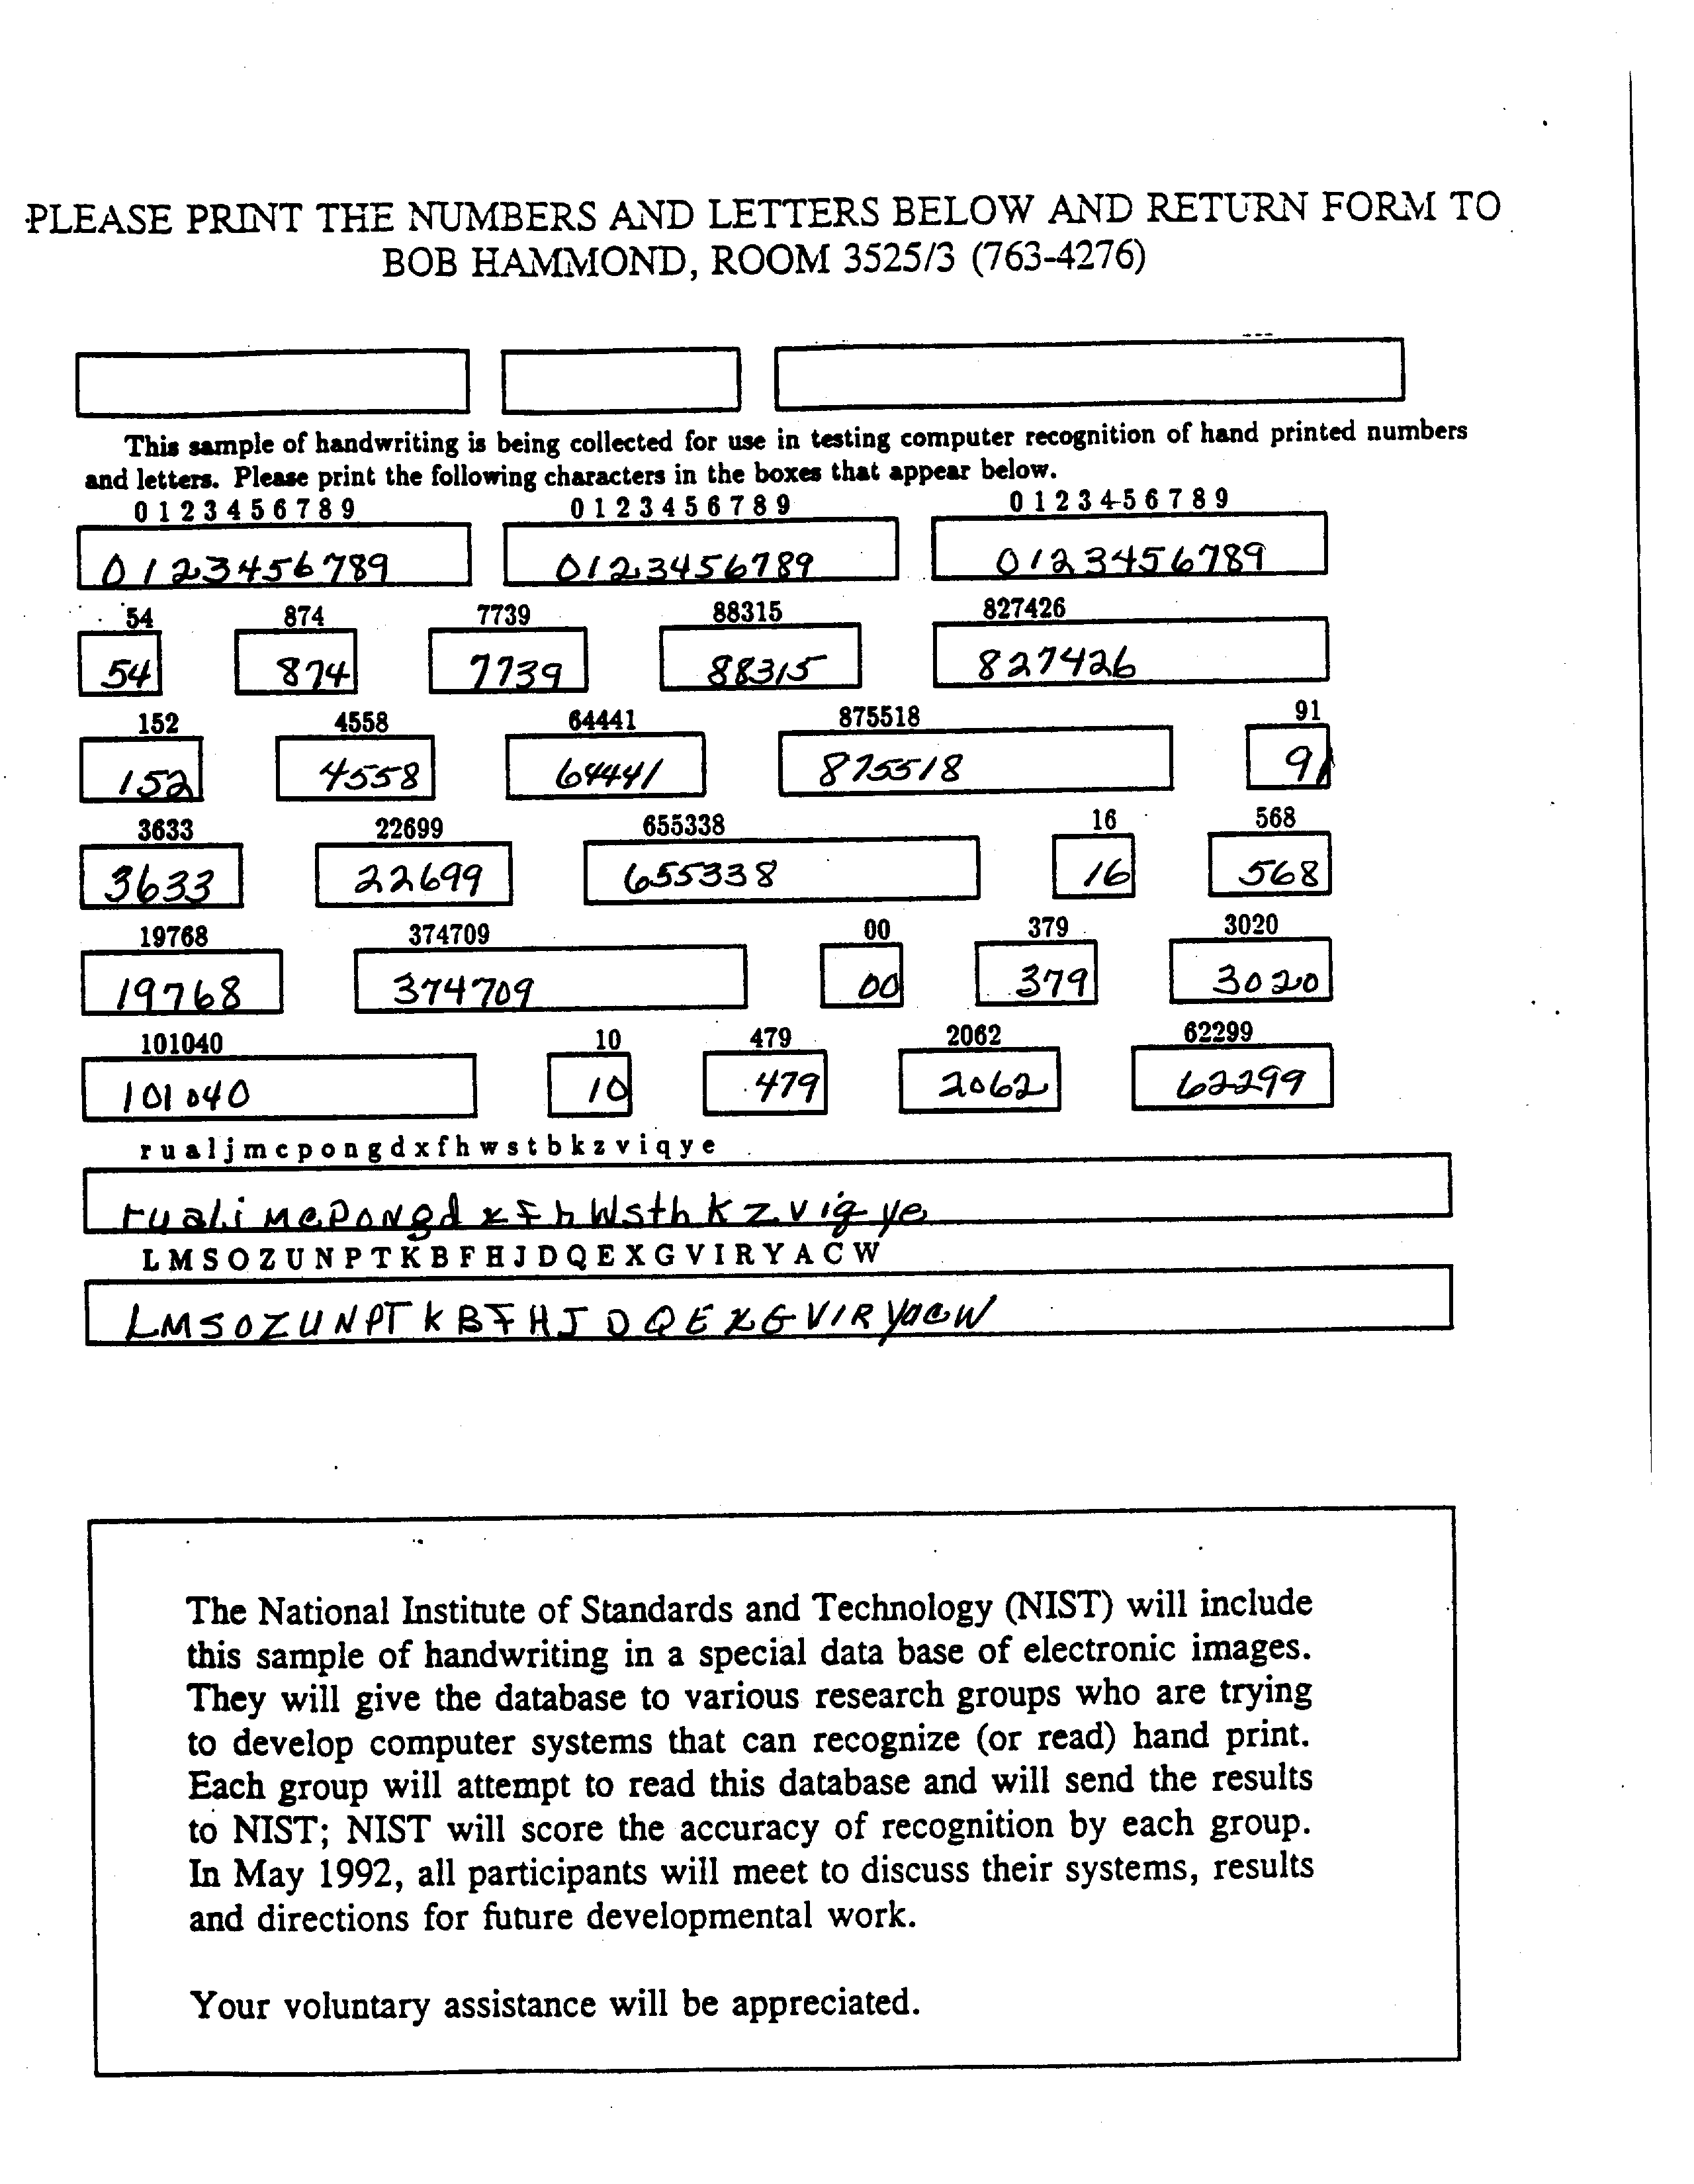 PLEASE PRINT THE NUMBERS AND LETTERS BELOW AND RETURN FORM TO
BOB HAMMOND, ROOM 3525/3 (763-4276)
This sample of handwriting is being collected for use in testing computer recognition of hand printed numbers
and letters. Please print the following characters in the boxes that appear below.
0 1 2 3 4 5 6 7 8 9 0 1 2 3 4 5 6 7 8 9 0 1 2 3 4 5 6 7 8 9
0123456789 0123456789 0123456789
54 874 7739 88315 827426
54 874 7739 88315 827426
152 4558 64441 875518 91
152 4558 64441 875518 91
3633 22699 655338 16 568
3633 22699 655338 16 568
19768 374709 00 379 3020
19768 374709 00 379 3020
101040 10 479 2062 62299
101040 10 479 2062 62299
r u a l j m c p o n g d x f h w s t b k z v i q y e
rualimcpongdxfhWsthkzviqye
L M S O Z U N P T K B F H J D Q E X G V I R Y A C W
LMSOZUNPTKBFHJDQEXGVIRYACW
The National Institute of Standards and Technology (NIST) will include
this sample of handwriting in a special data base of electronic images.
They will give the database to various research groups who are trying
to develop computer systems that can recognize (or read) hand print.
Each group will attempt to read this database and will send the results
to NIST; NIST will score the accuracy of recognition by each group.
In May 1992, all participants will meet to discuss their systems, results
and directions for future developmental work.
Your voluntary assistance will be appreciated.